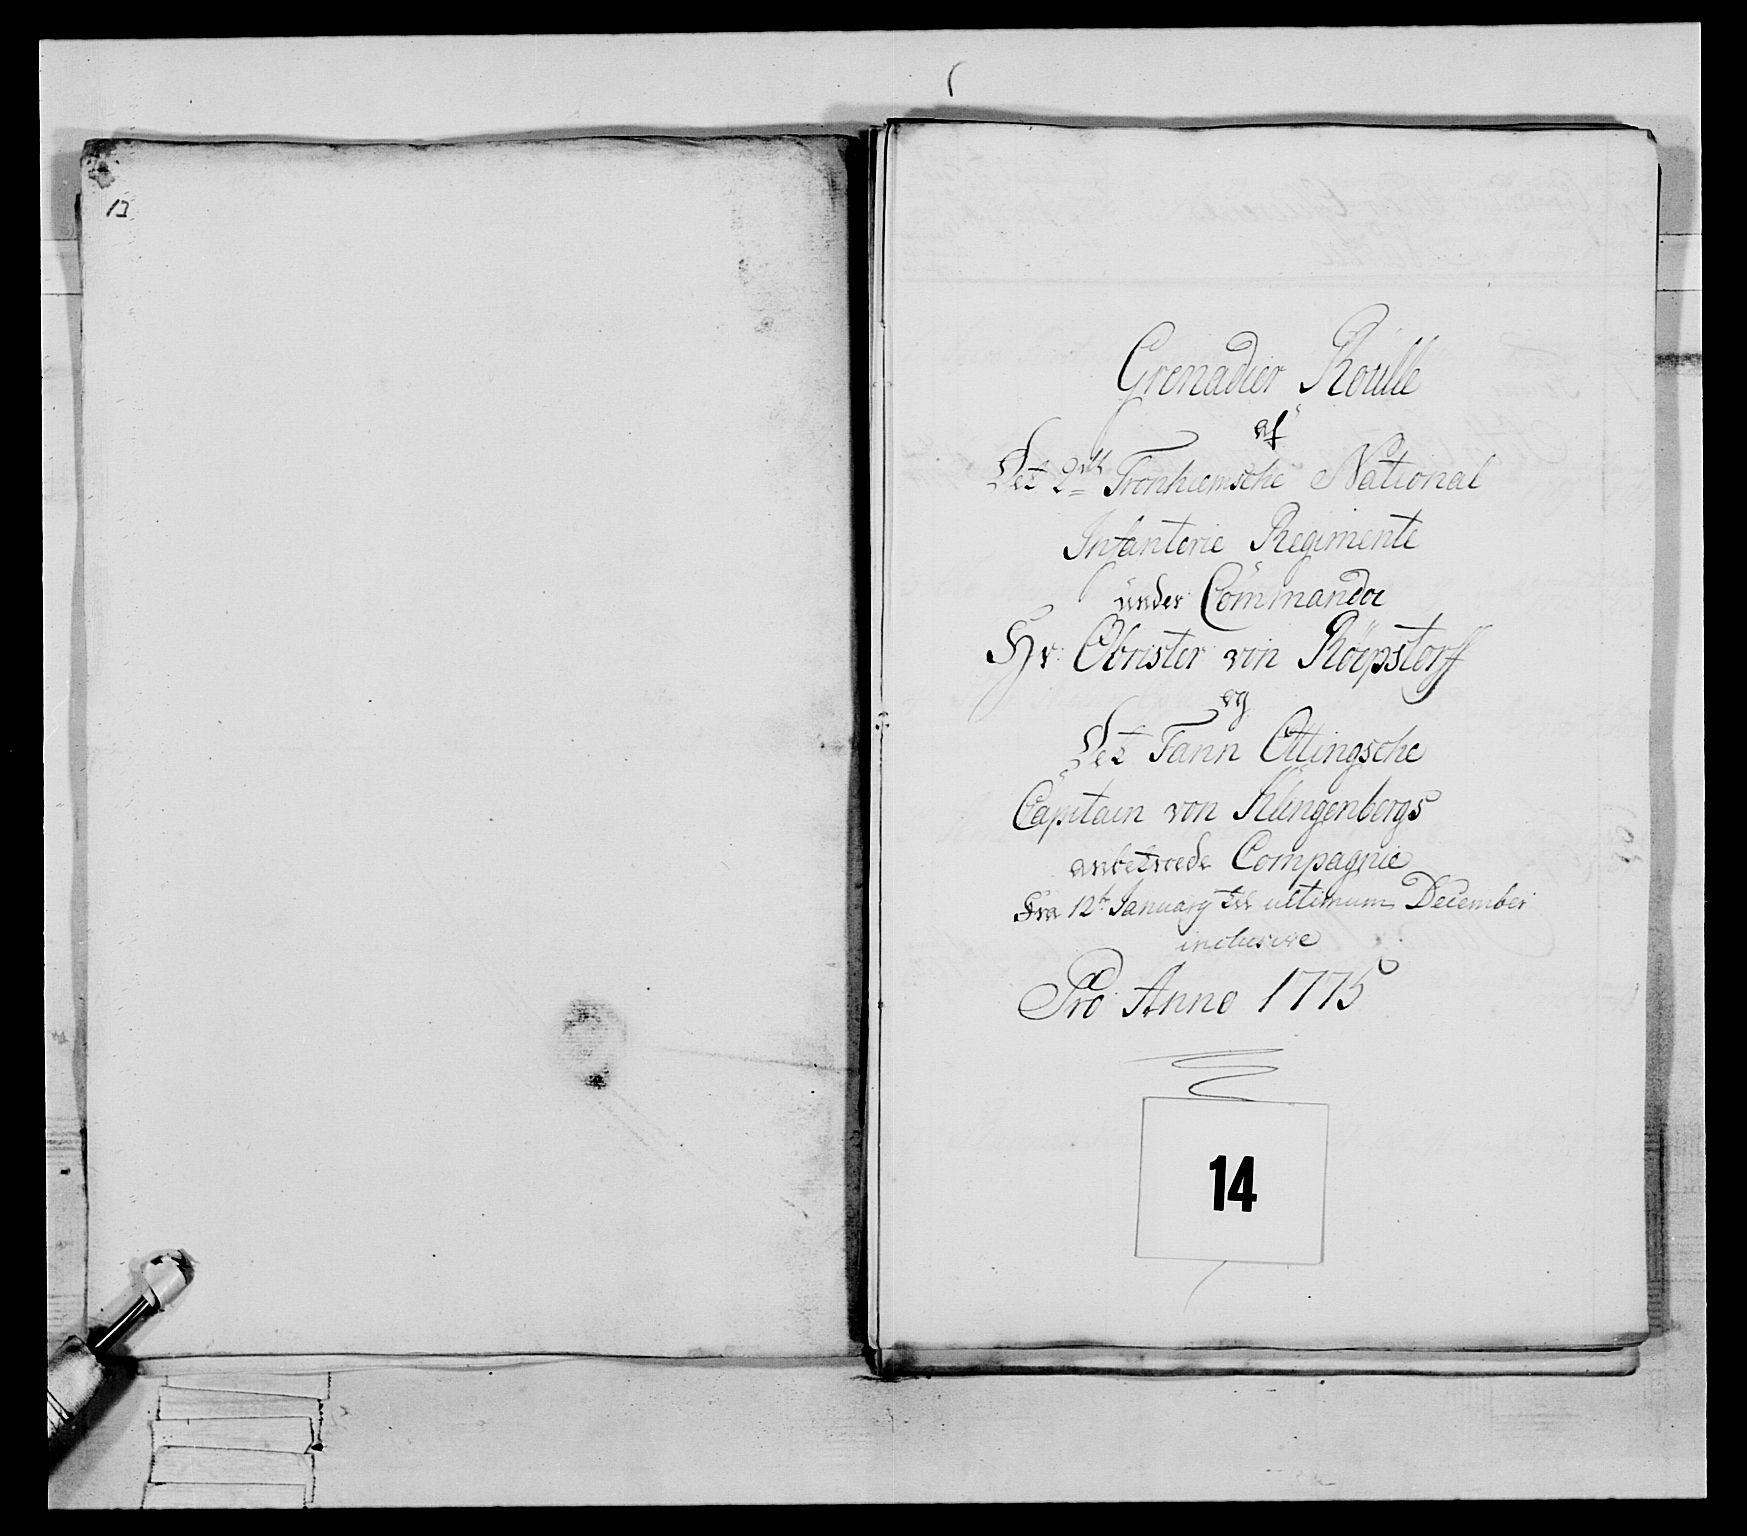 13
Grenadier Roulle
af
Det 2det Tronhiemsche National
Infanterie Regimente
under Commando
Hr: Obrister von Röepstorff
og
Det Fann Ottingsche
Capitain von Klingenbergs
anbetroede Compagnie
Fra 12te January til ultimum December
inclusive
Pro Anno 1775
14